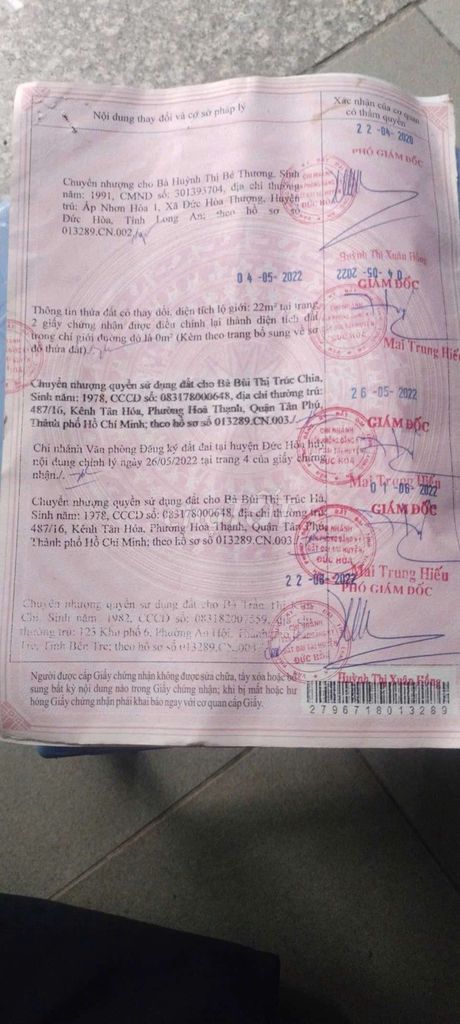 Nội dung thay đổi và cơ sở pháp lý
Xác nhận của cơ quan
có thẩm quyền
22-04-2020
PHÓ GIÁM ĐỐC
Chuyển nhượng cho Bà Huỳnh Thị Bé Thương, Sinh
năm: 1991, CMND số: 301395704, địa chỉ thường
trú: Ấp Nhơn Hòa 1, Xã Đức Hòa Thượng, Huyện
Đức Hòa, Tỉnh Long An; theo hồ sơ số
013289.CN.002./.
Huỳnh Thị Xuân Hồng
04-05-2022
04-05-2022
GIÁM ĐỐC
Thông tin thửa đất có thay đổi, diện tích lộ giới: 22m² tại trang
2 giấy chứng nhận được điều chỉnh lại thành diện tích đất
trong chỉ giới đường đỏ là 0m² (Kèm theo trang bổ sung về sơ
đồ thửa đất)./.
Mai Trung Hiếu
Chuyển nhượng quyền sử dụng đất cho Bà Bùi Thị Trúc Chia,
Sinh năm: 1978, CCCD số: 083178000648, địa chỉ thường trú:
487/16, Kênh Tân Hóa, Phường Hoà Thạnh, Quận Tân Phú,
Thành phố Hồ Chí Minh; theo hồ sơ số 013289.CN.003./.
26-05-2022
GIÁM ĐỐC
Chi nhánh Văn phòng Đăng ký đất đai tại huyện Đức Hòa hủy
nội dung chỉnh lý ngày 26/05/2022 tại trang 4 của giấy chứng
nhận./.
Mai Trung Hiếu
01-06-2022
GIÁM ĐỐC
Chuyển nhượng quyền sử dụng đất cho Bà Bùi Thị Trúc Hà,
Sinh năm: 1978, CCCD số: 083178000648, địa chỉ thường trú:
487/16, Kênh Tân Hóa, Phường Hoà Thạnh, Quận Tân Phú,
Thành phố Hồ Chí Minh; theo hồ sơ số 013289.CN.003./.
Mai Trung Hiếu
22-08-2022
PHÓ GIÁM ĐỐC
Chuyển nhượng quyền sử dụng đất cho Bà Trần Thị
Chi, Sinh năm: 1982, CCCD số: địa chỉ
thường trú: 123 Khu phố 6, Phường An Hội, Thành phố Bến
Tre, Tỉnh Bến Tre; theo hồ sơ số 013289.CN.004
Huỳnh Thị Xuân Hồng
Người được cấp Giấy chứng nhận không được sửa chữa, tẩy xóa hoặc bổ
sung bất kỳ nội dung nào trong Giấy chứng nhận; khi bị mất hoặc hư
hỏng Giấy chứng nhận phải khai báo ngay với cơ quan cấp Giấy.
279671801 3289